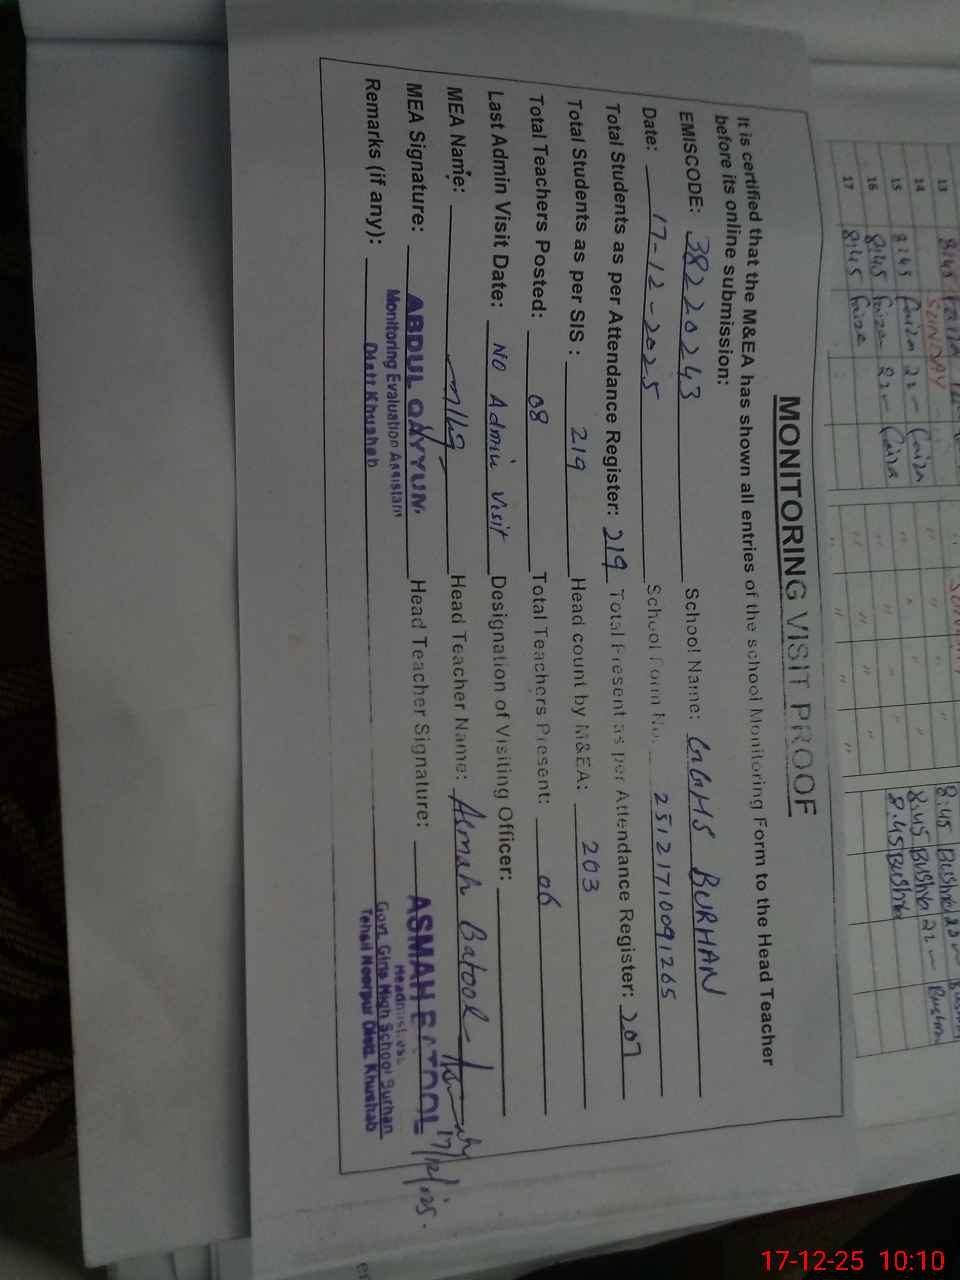 MONITORING VISIT PROOF
It is certified that the M&EA has shown all entries of the school Monitoring Form to the Head Teacher
before its online submission:
EMISCODE: 38220243 School Name: GGHS BURHAN
Date: 17-12-2025 School Form No. 25121710091265
Total Students as per Attendance Register: 219 Total Present as per Attendance Register: 207
Total Students as per SIS: 219 Head count by M&EA: 203
Total Teachers Posted: 08 Total Teachers Present: 06
Last Admin Visit Date: No Admin visit Designation of Visiting Officer:
MEA Name: Head Teacher Name: Asmah Batool
MEA Signature: ABDUL QAYYUM Head Teacher Signature: ASMAH BATOOL 17/12/025.
Monitoring Evaluation Assistant Headmistress
Remarks (if any): Distt Khushab Govt. Girls High School Burhan
Tehsil Noorpur Distt. Khushab
13 8:45
SUNDAY
14 Faiza 22 Faiza
15 8:45 Faiza 22 Faiza
16 8:45 Faiza
17 8:45 Faiza
8:45 Bushra
8:45 Bushra 22 Bushra
8:45 Bushra
17-12-25 10:10